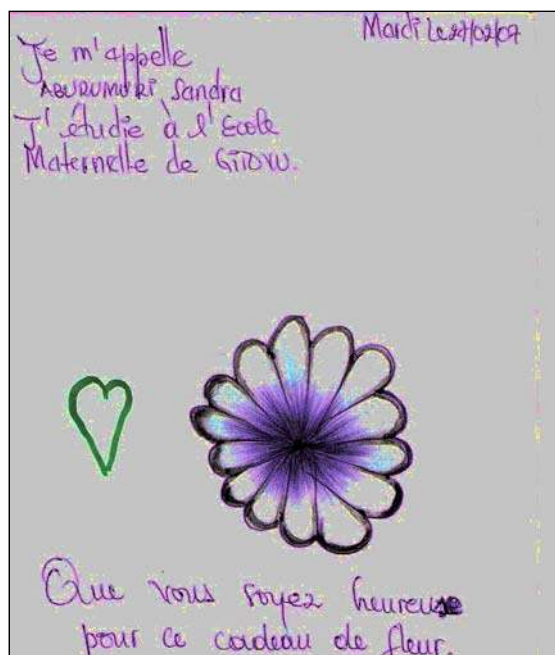 Mardi Le 27/02/07
Je m'appelle
ABURUMUKI Sandra
J'étudie à l'Ecole
Maternelle de GITOVU.
Que vous soyez heureuse
pour ce cadeau de fleur.